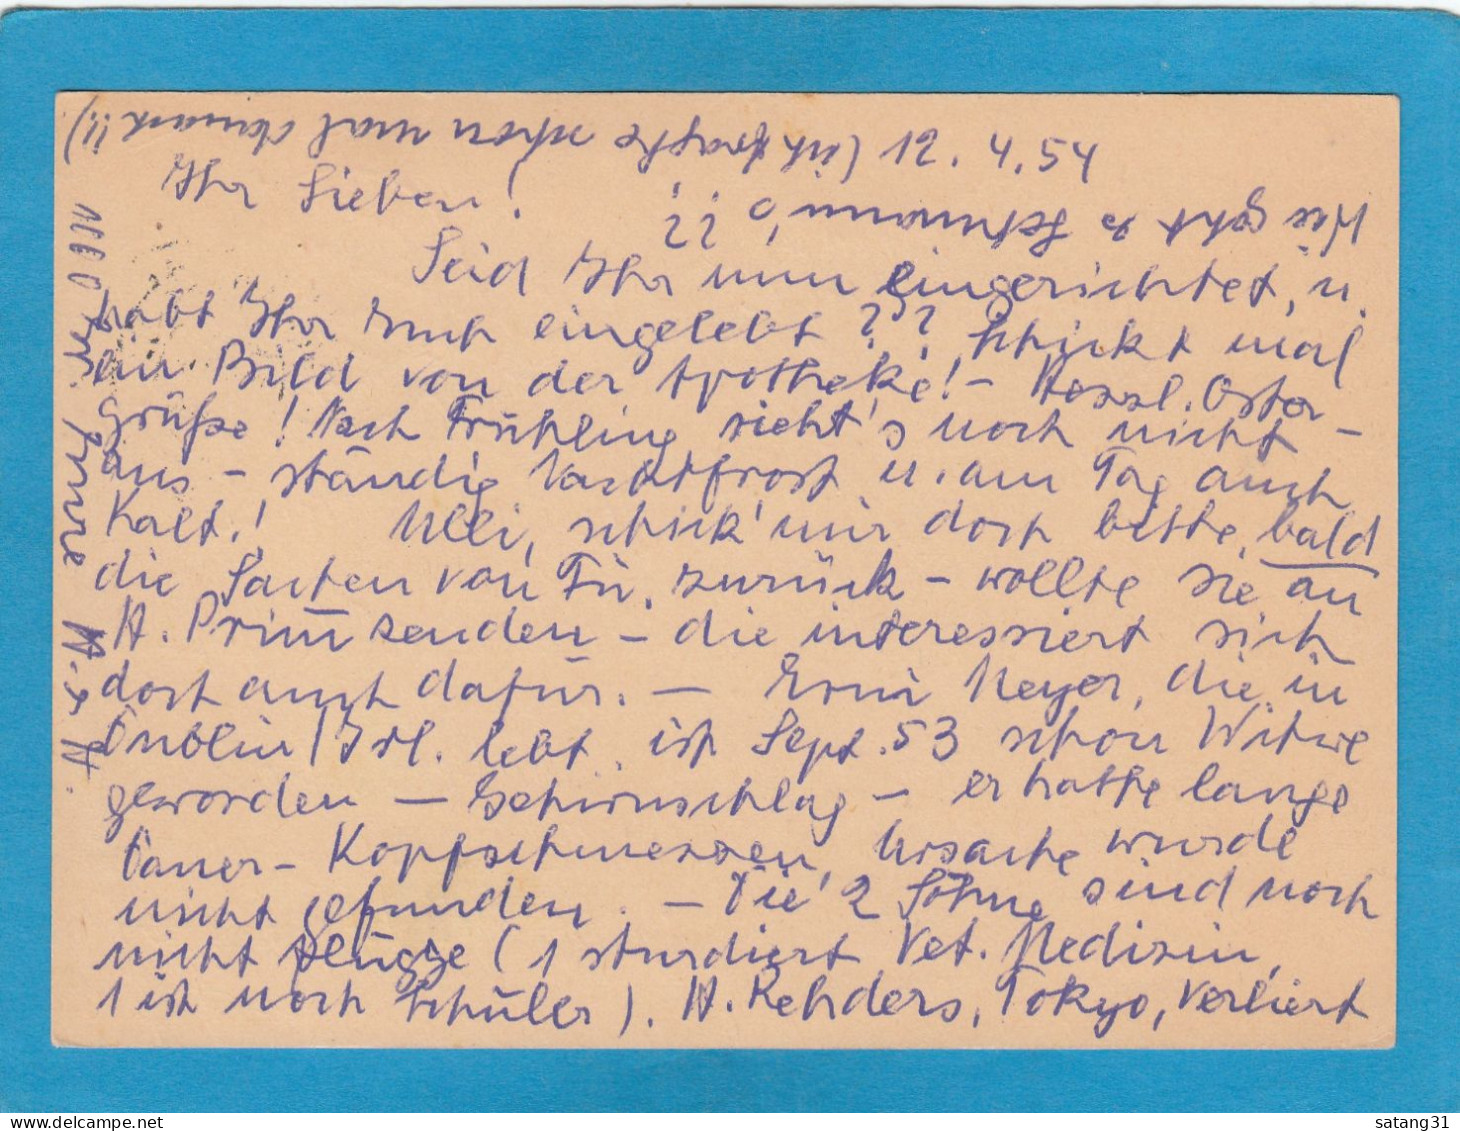 12.4.54
Ihr Lieben!
Seid Ihr nun eingerichtet, u.
habt Ihr Euch eingelebt?? Schickt mal
ein Bild von der Apotheke! – Herzl. Oster-
grüße! Nach Frühling sieht's noch nicht
aus – ständig Nachtfrost u. am Tag auch
kalt! Ulli, schick' mir doch bitte, bald
die Sachen von Fü. zurück – wollte sie an
H. Prim senden – die interessiert sich
doch auch dafür. – Erni Meyer, die in
Dublin/Irl. lebt, ist Sept. 53 schon Witwe
geworden – Gehirnschlag – er hatte lange
Dauer-Kopfschmerzen, Ursache wurde
nicht gefunden. – Die 2 Söhne sind noch
nicht flügge (1 sturdiert Vet. Medizin,
1 ist noch Schüler). H. Rehders, Tokyo, verliert
Wie geht es Lehmann's??
(ich fragte schon mal danach!!)
Eure H. & A.
satang31